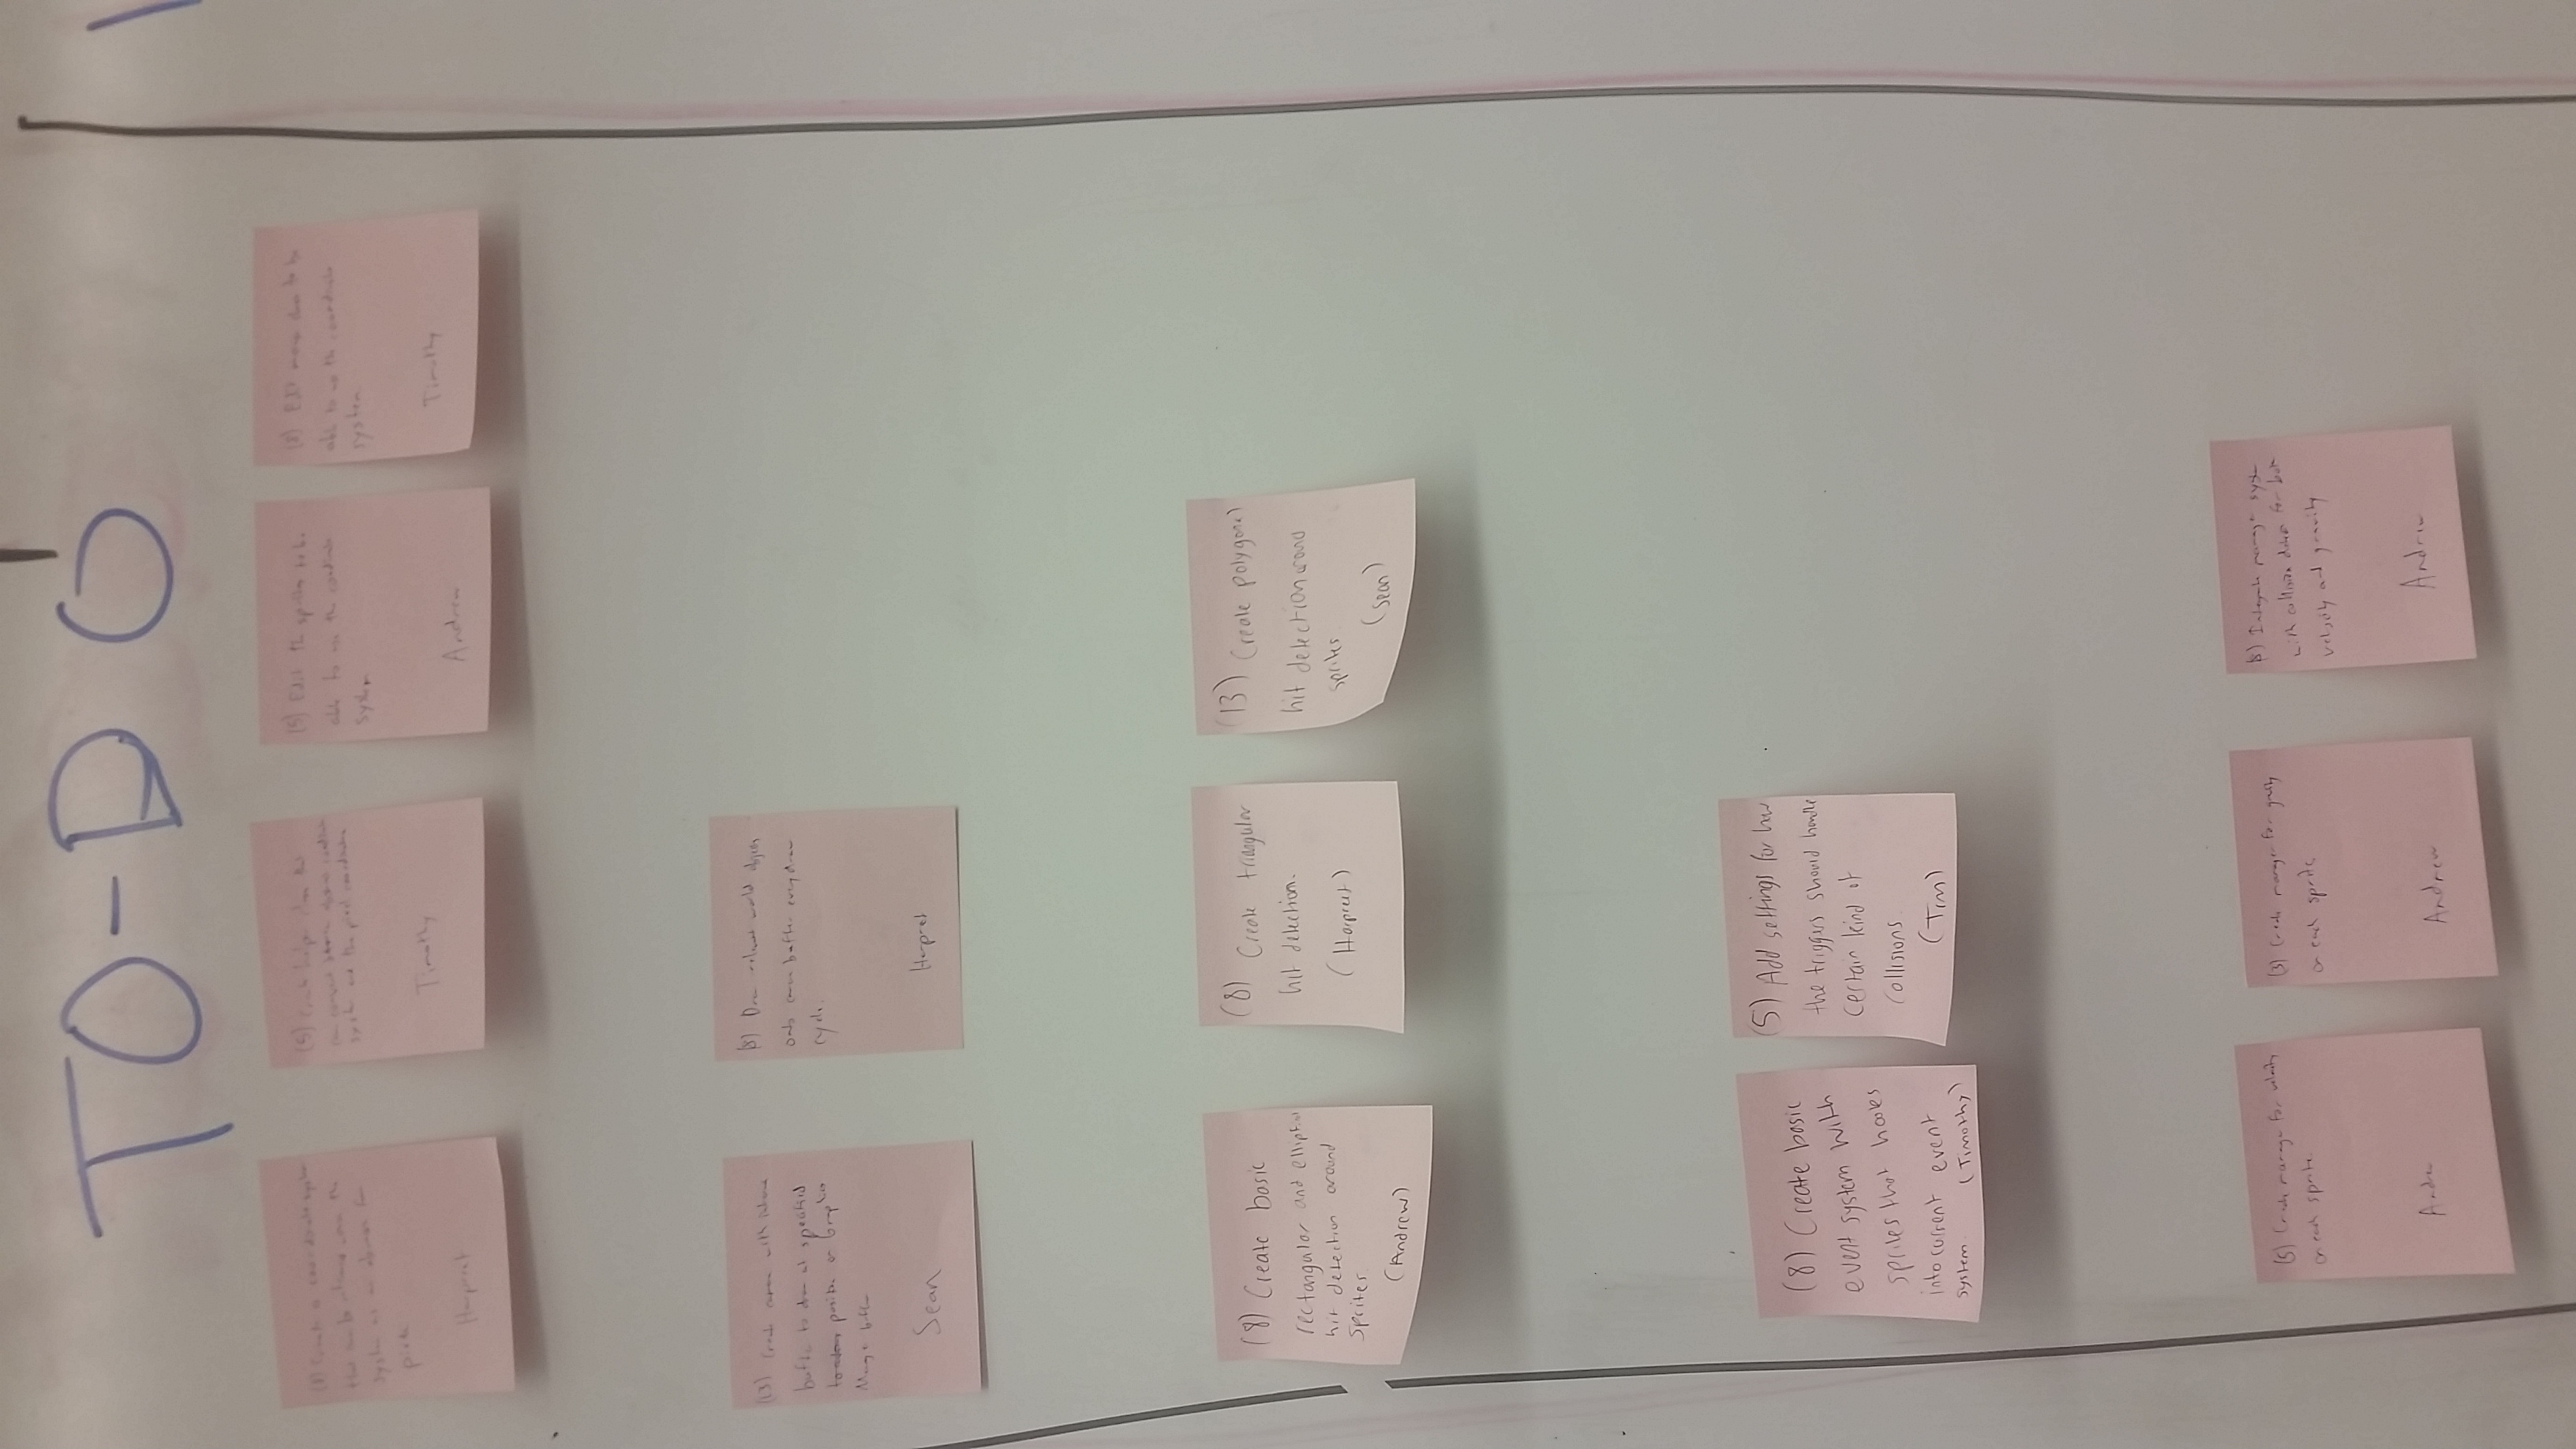 TO-DO
Create a coordinate system
that can be
system as
Harpreet
(5) Create helper class that
can convert
system and the pixel coordinates
Timothy
(5) Edit the sprites to be
able to use the coordinate
system
Andrew
Edit to be
able to use the coordinate
system
Timothy
(13) Create camera with
buffer to draw at specified
position on Graphics
buffer
Sean
(8) Draw relevant world objects
onto camera buffer every draw
cycle.
Harpreet
(8) Create basic
rectangular and elliptical
hit detection around
Sprites
(Andrew)
(8) Create triangular
hit detection.
(Harpreet)
(13) Create polygonal
hit detection around
sprites.
(Sean)
(8) Create basic
event system with
sprites that hooks
into current event
system. (Timothy)
(5) Add settings for how
the triggers should handle
certain kind of
collisions.
(Tim)
(5) Create manager for velocity
on each sprite.
Andrew
(3) Create manager for gravity
on each sprite
Andrew
(8) Integrate manager system
with collision for both
velocity and gravity
Andrew